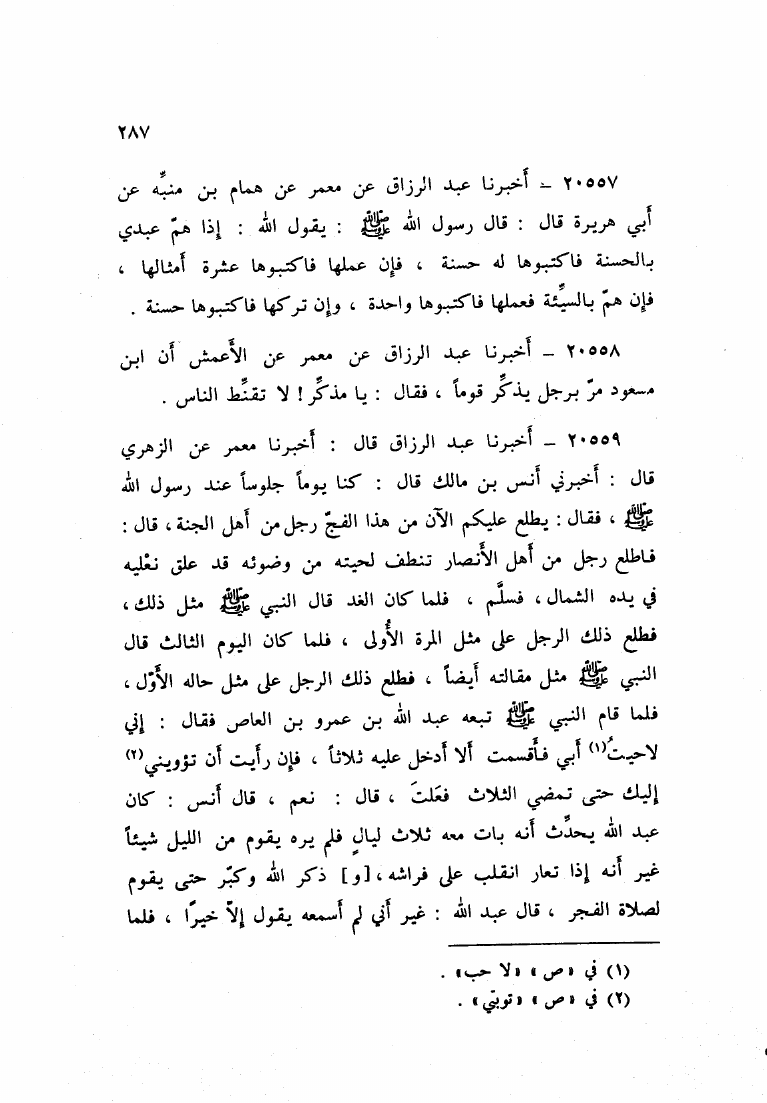 ٢٨٧
٢٠٥٥٧ – أخبرنا عبد الرزاق عن معمر عن همام بن منبِّه عن
أبي هريرة قال : قال رسول الله ﷺ : يقول الله : إذا همّ عبدي
بالحسنة فاكتبوها له حسنة ، فإن عملها فاكتبوها عشرة أمثالها ،
فإن همّ بالسيِّئة فعملها فاكتبوها واحدة ، وإن تركها فاكتبوها حسنة .
٢٠٥٥٨ – أخبرنا عبد الرزاق عن معمر عن الأَعمش أن ابن
مسعود مرّ برجل يذكِّر قوماً ، فقال : يا مذكِّر ! لا تقنِّط الناس .
٢٠٥٥٩ – أخبرنا عبد الرزاق قال : أخبرنا معمر عن الزهري
قال : أخبرني أنس بن مالك قال : كنا يوماً جلوساً عند رسول الله
ﷺ ، فقال : يطلع عليكم الآن من هذا الفجّ رجل من أهل الجنة ، قال :
فاطلع رجل من أهل الأنصار تنطف لحيته من وضوئه قد علق نعْليه
في يده الشمال ، فسلَّم ، فلما كان الغد قال النبي ﷺ مثل ذلك ،
فطلع ذلك الرجل على مثل المرة الأُولى ، فلما كان اليوم الثالث قال
النبي ﷺ مثل مقالته أيضاً ، فطلع ذلك الرجل على مثل حاله الأَوّل ،
فلما قام النبي ﷺ تبعه عبد الله بن عمرو بن العاص فقال : إني
لاحيتُ(١) أبي فأَقسمت ألا أدخل عليه ثلاثاً ، فإن رأيت أن تؤويني(٢)
إليك حتى تمضي الثلاث فعَلتَ ، قال : نعم ، قال أنس : كان
عبد الله يحدِّث أنه بات معه ثلاث ليالٍ فلم يره يقوم من الليل شيئاً
غير أنه إذا تعار انقلب على فراشه ، [و] ذكر الله وكبّر حتى يقوم
لصلاة الفجر ، قال عبد الله : غير أني لم أسمعه يقول إلاّ خيرًا ، فلما
(١) في «ص» «لا حب» .
(٢) في «ص» «توبتي» .